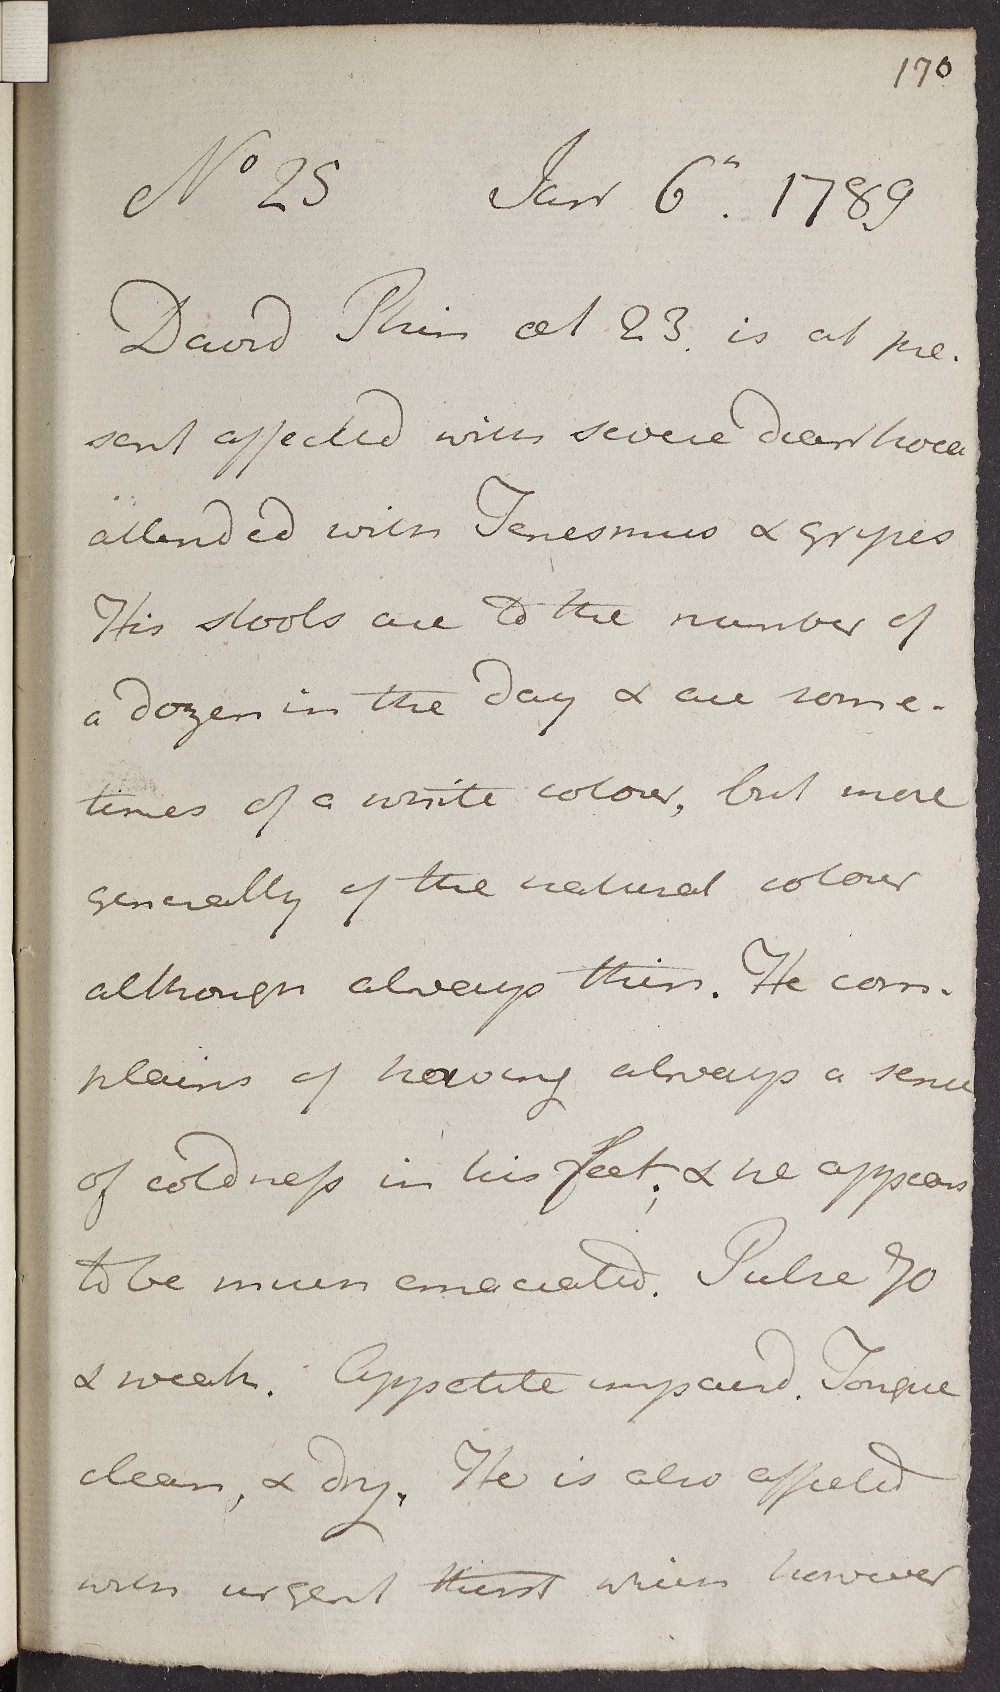 170
No 25 Janr 6th. 1789
David Phin æt 23. is at pre-
sent affected with severe diarrhoea
attended with Tenesmus & gripes
His stools are to the number of
a dozen in the day & are some-
times of a white colour, but more
generally of the natural colour
although always thin. He com-
plains of having always a sense
of coldness in his feet; & he appears
to be much emaciated. Pulse 70
& weak. Appetite impaird. Tongue
clean, & dry. He is also affected
with urgent thirst which however